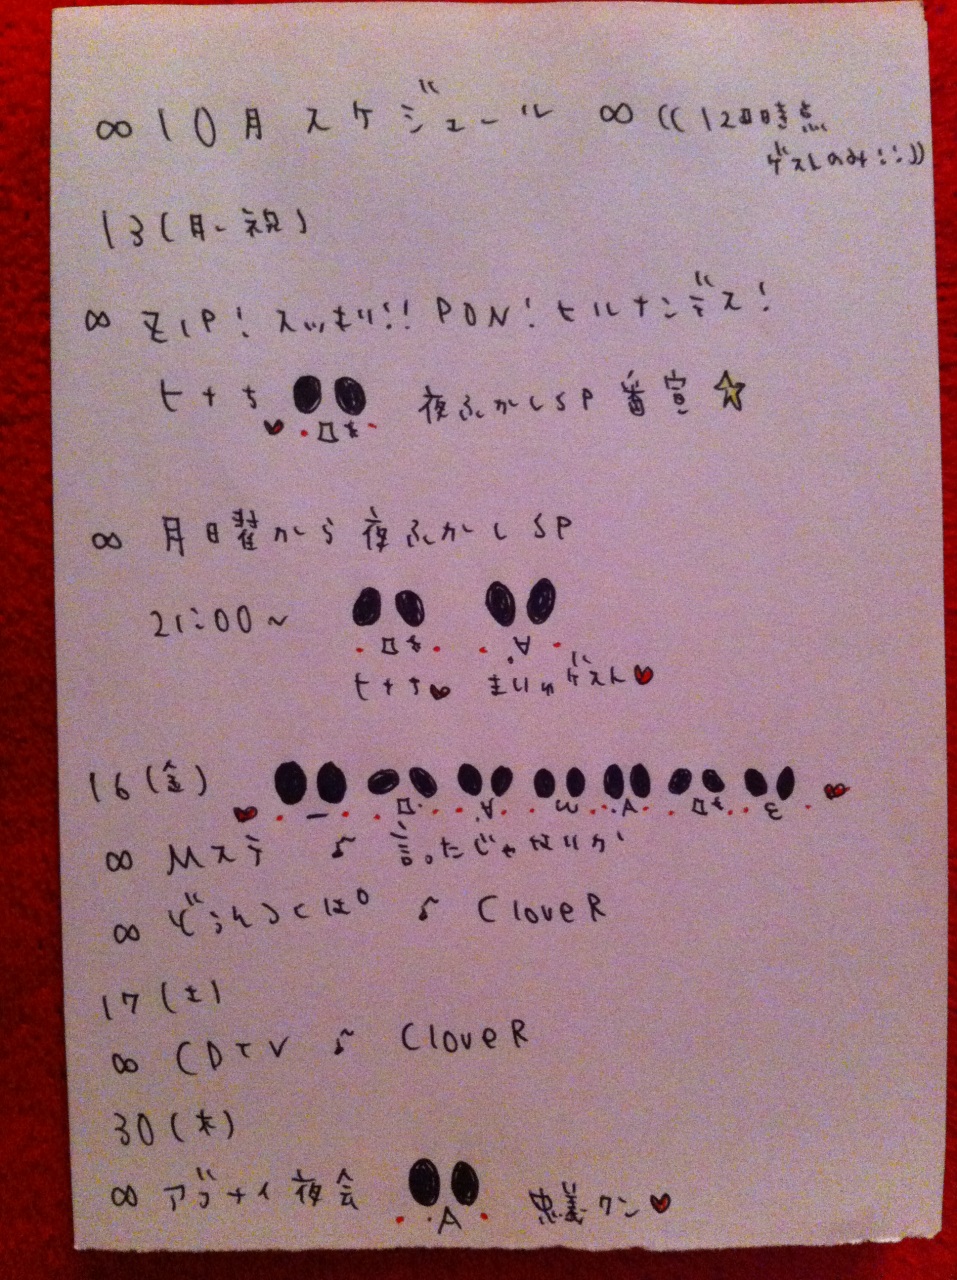 ∞10月スケジュール ∞ ((12日時点
ゲストのみ::))
13(月・祝)
∞ ZIP! スッキリ!! PON! ヒルナンデス!
ヒナち 夜ふかしSP 番宣☆
∞ 月曜から夜ふかしSP
21:00~
ヒナち♥ まりゅゲスト♥
16(金)
∞ Mステ ♪ 言ったじゃないか
∞ どぅんつくぱ ♪ CloveR
17(土)
∞ CDTV ♪ CloveR
30(木)
∞ アブナイ夜会 忠義クン♥